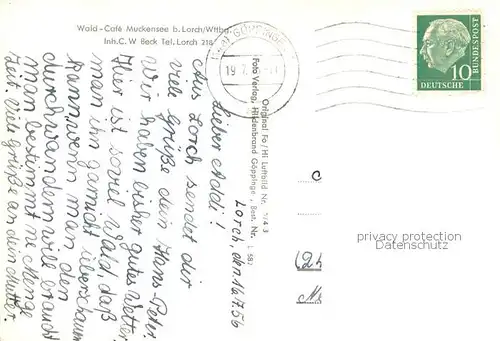 Wald-Café Muckensee b. Lorch/Wttbg.
Inh. C. W Beck Tel. Lorch 218
GÖPPINGEN
19.7.
10
DEUTSCHE
BUNDESPOST
Original Fo/Hi Luftbild Nr. 1/4 3
Foto Verlag, Hildenbrand Göppinge
Best. Nr. L 582
Lorch, den 16.7.56
Lieber Addi!
Aus Lorch sendet dir
viele Grüße dein Hans-Peter.
Wir haben bisher gutes Wetter.
Hier ist soviel Wald, daß
man ihn garnicht überschauen
kann, wenn man den
durchwandern will braucht
man bestimmt ne Menge
Zeit. Viele Grüße an dein Mutter.
privacy protection
Datenschutz